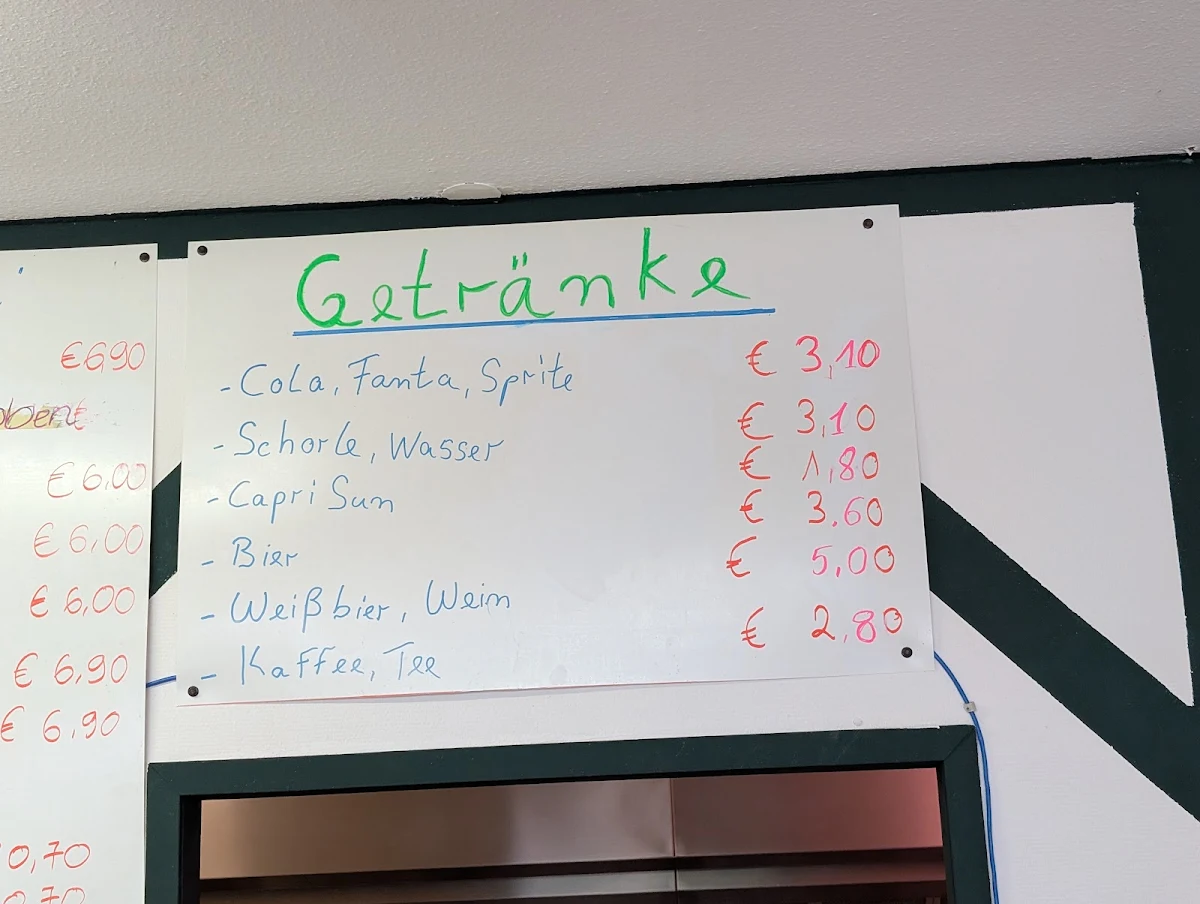 Getränke
- Cola, Fanta, Sprite € 3,10
- Schorle, Wasser € 3,10
- Capri Sun € 1,80
- Bier € 3,60
- Weißbier, Wein € 5,00
- Kaffee, Tee € 2,80
€ 6,90
€ 6,00
€ 6,00
€ 6,00
€ 6,90
€ 6,90
0,70
0,70